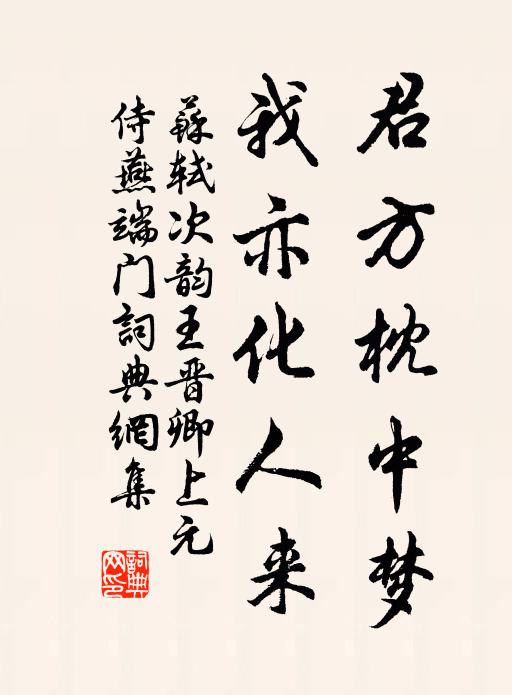 君方枕中梦
我亦化人来
蘇轼次韵王晋卿上元
侍燕端门詞典網集
詞典网印